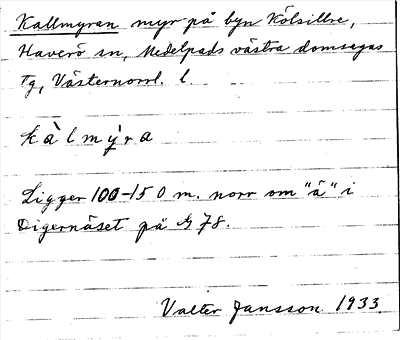 Kallmyran myr på byn Kölsillre,
Haverö sn, Medelpads västra domsagas
tg, Västernorrl. l.
kàlmy̌ra
Ligger 100-150 m. norr om "ä" i
Digernäset på G 78.
Valter Jansson 1933